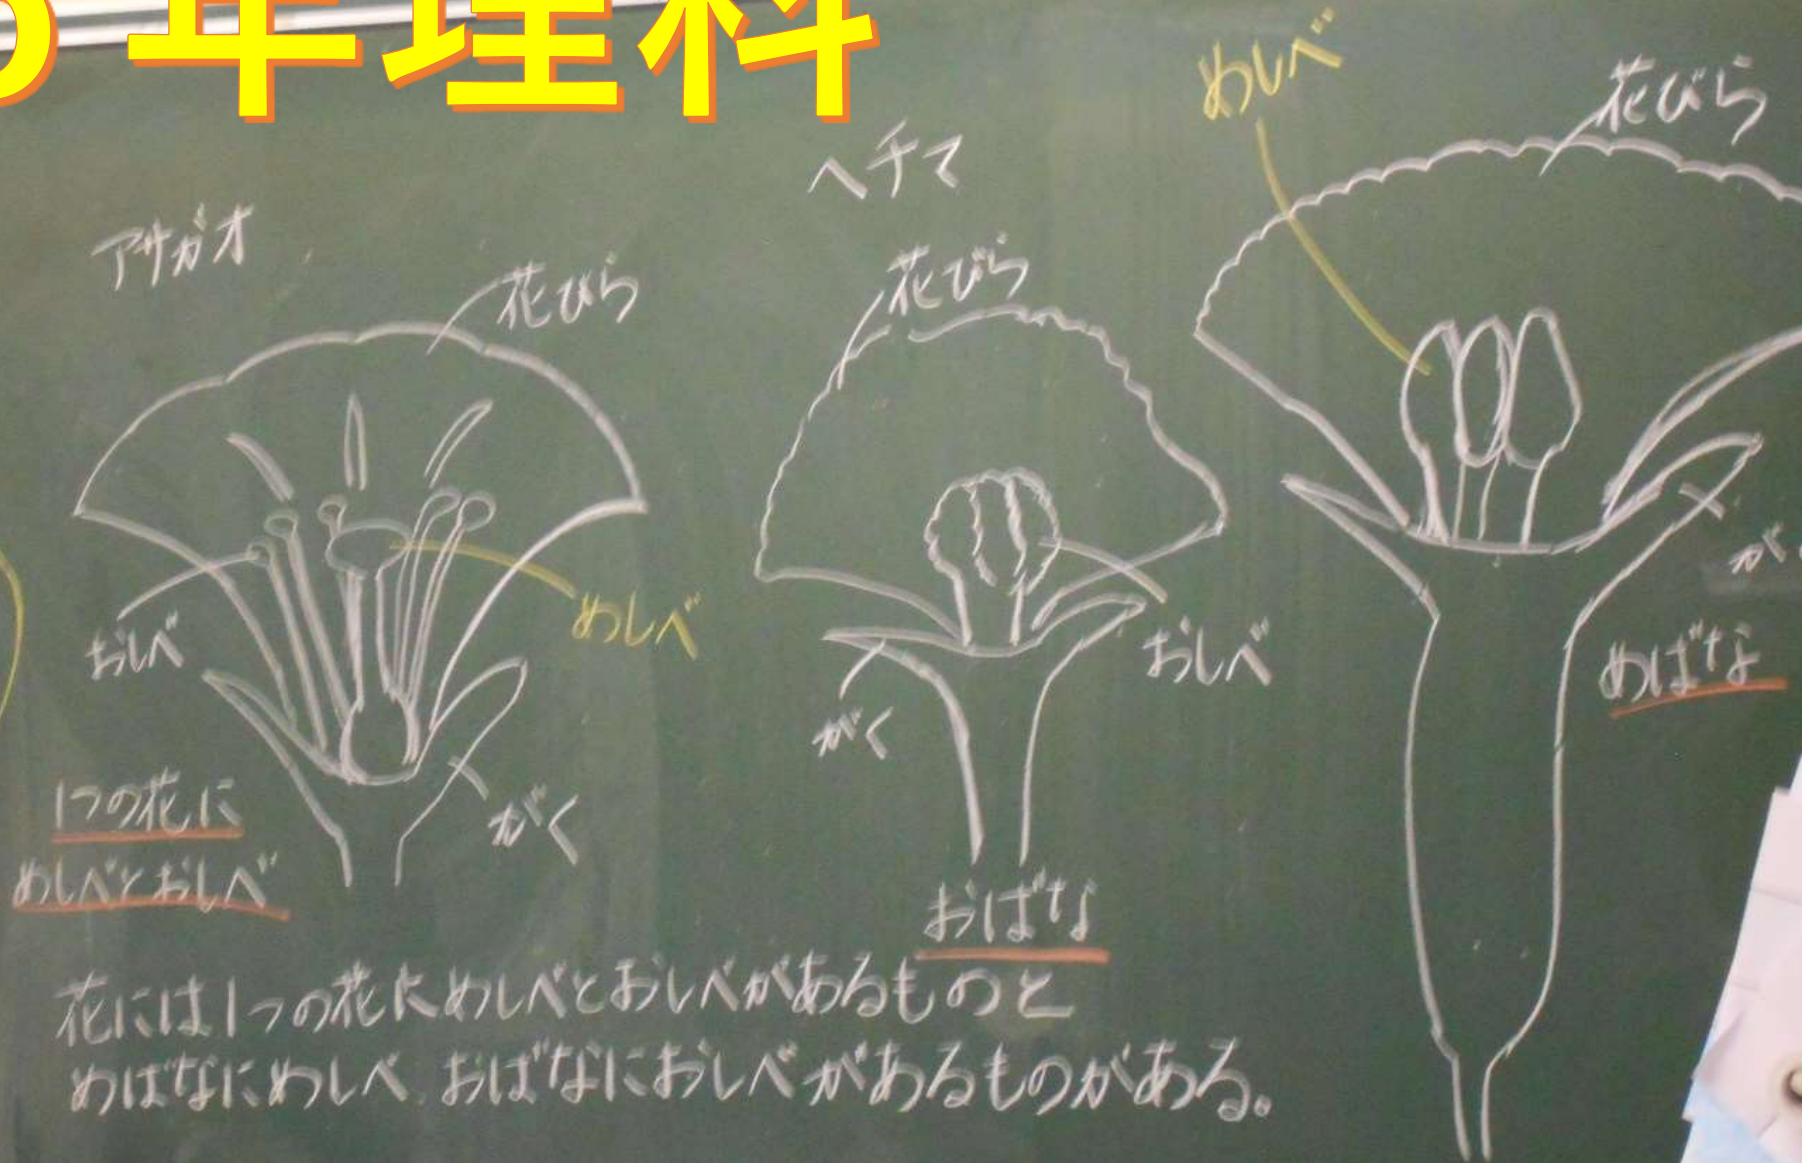 5年理科
アサガオ
花びら
おしべ
めしべ
がく
1つの花に
めしべとおしべ
ヘチマ
花びら
おしべ
がく
おばな
めしべ
花びら
が
めばな
花には1つの花にめしべとおしべがあるものと
めばなにめしべ、おばなにおしべがあるものがある。